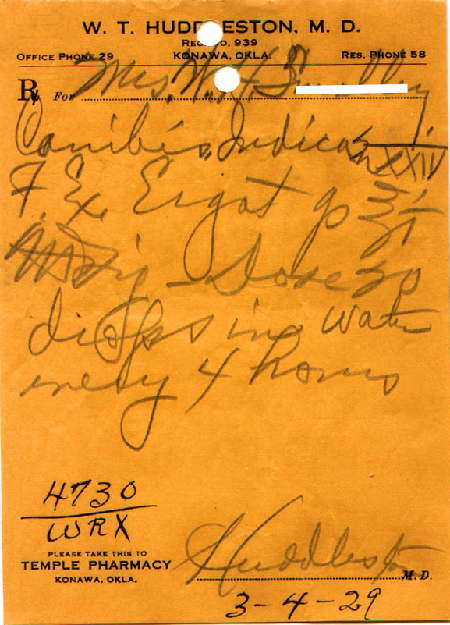 W. T. HUDDLESTON, M. D.
REG. NO. 939
OFFICE PHONE 29 KONAWA, OKLA. RES. PHONE 58
Rx For Mrs.
Canibis Indica XXIV
F. Ex. Ergot
Sig - Dose 20
drops in water
every 4 hours
4730
WRX
PLEASE TAKE THIS TO
TEMPLE PHARMACY
KONAWA, OKLA.
Huddleston M.D.
3-4-29